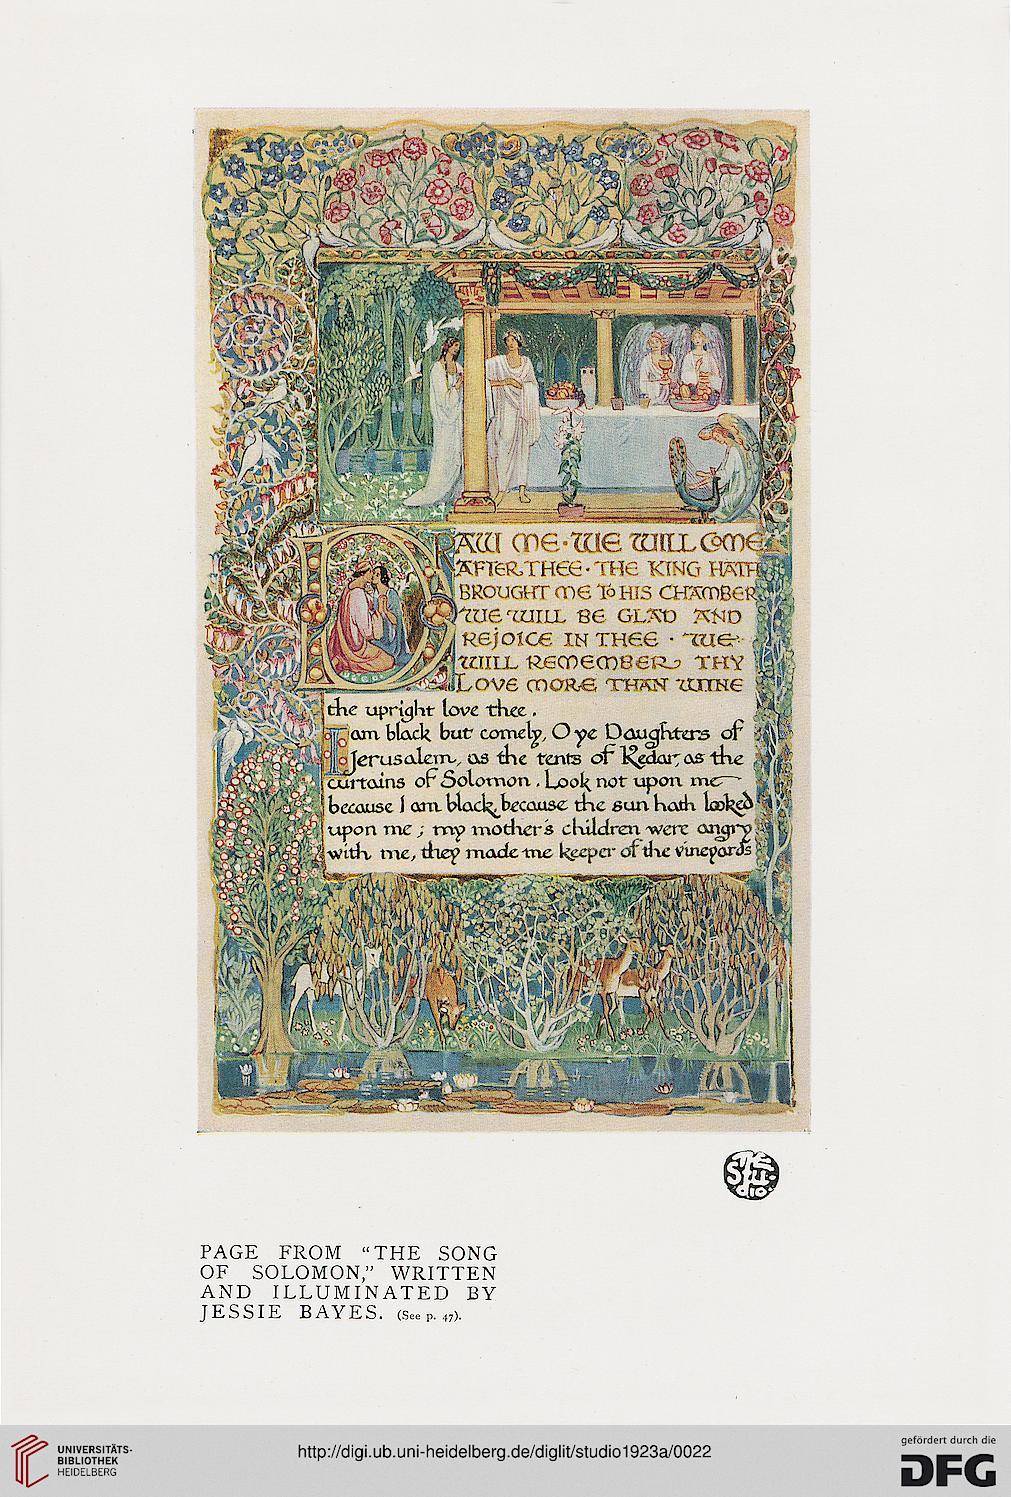 DRAW ME · WE WILL COME
AFTER THEE · THE KING HATH
BROUGHT ME TO HIS CHAMBER
WE WILL BE GLAD AND
REJOICE IN THEE · WE
WILL REMEMBER THY
LOVE MORE THAN WINE
the upright love thee.
I am black but comely, O ye Daughters of
Jerusalem, as the tents of Kedar, as the
curtains of Solomon. Look not upon me
because I am black, because the sun hath looked
upon me; my mother's children were angry
with me, they made me keeper of the vineyards
THE
STU-
DIO
PAGE FROM “THE SONG
OF SOLOMON,” WRITTEN
AND ILLUMINATED BY
JESSIE BAYES. (See p. 47).
UNIVERSITÄTS-
BIBLIOTHEK
HEIDELBERG
http://digi.ub.uni-heidelberg.de/diglit/studio1923a/0022
gefördert durch die
DFG